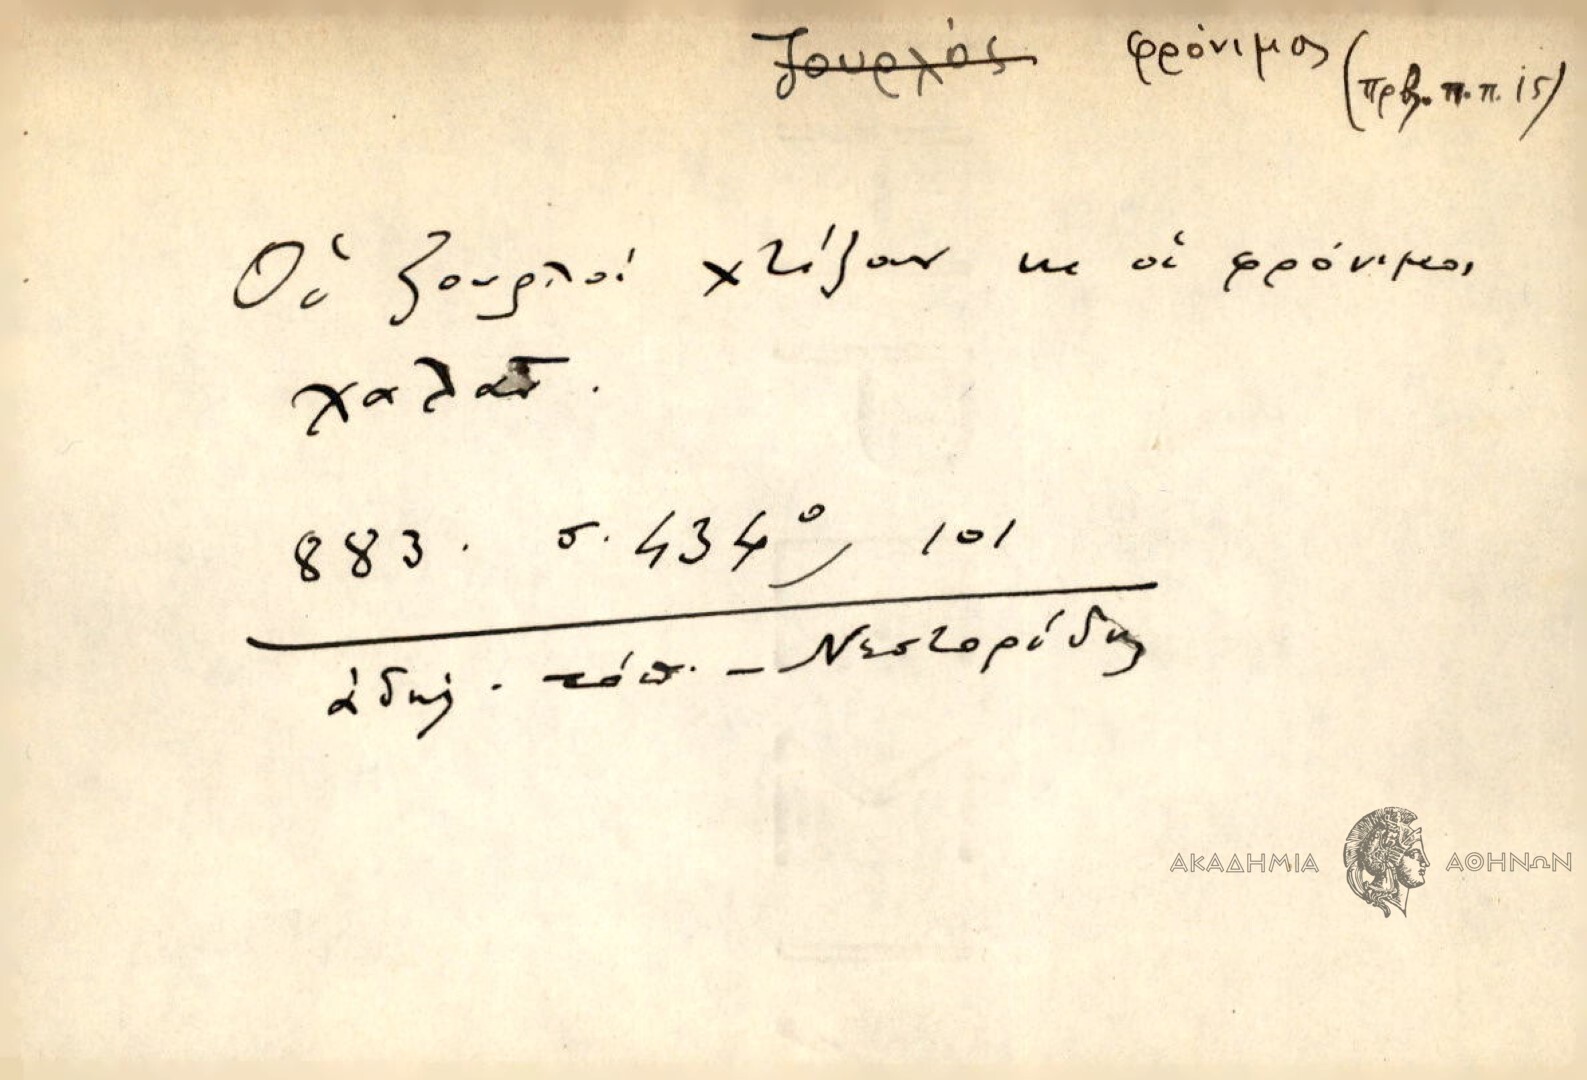 ζουρλός φρόνιμος
(πρβ. π.π. 15)
Οἱ ζουρλοί χτίζουν κι οἱ φρόνιμοι
χαλᾶν.
883. σ. 434, 101
ἀδήλ. τόπ. - Νεστορίδης
ΑΚΑΔΗΜΙΑ ΑΘΗΝΩΝ